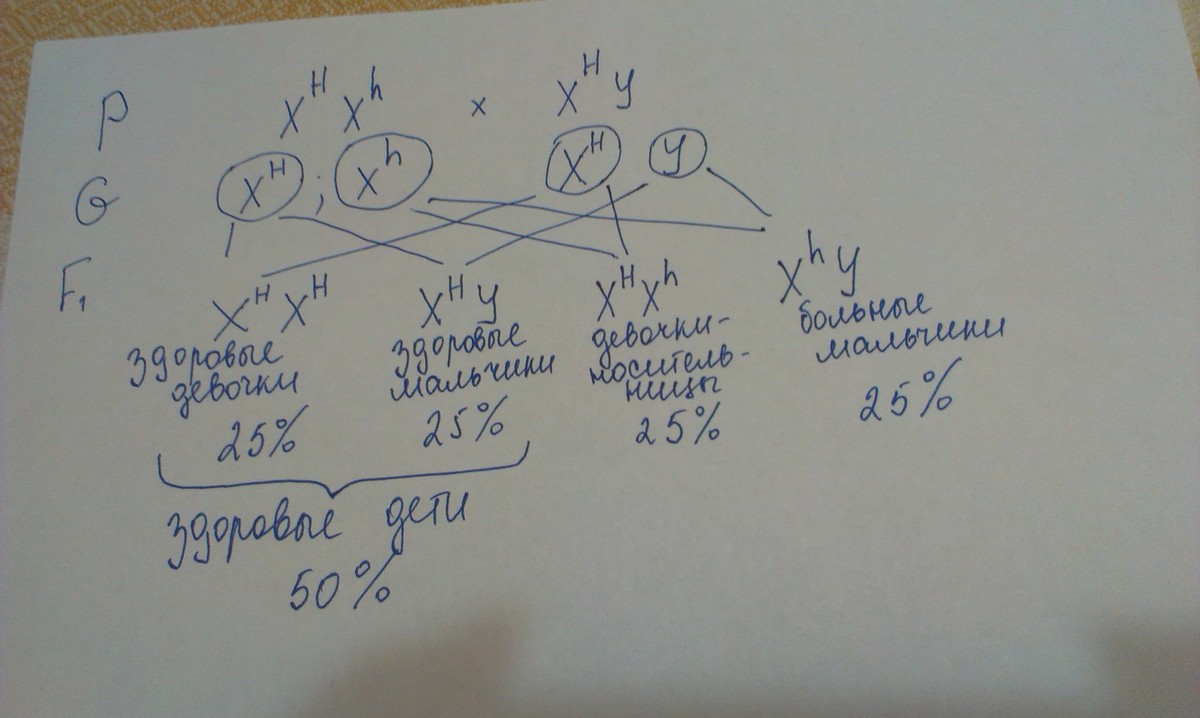 P X^H X^h x X^H y
G X^H ; X^h X^H y
F₁ X^H X^H X^H y X^H X^h X^h y
здоровые девочки
25%
здоровые мальчики
25%
девочки-
носитель-
ницы
25%
больные
мальчики
25%
здоровые дети
50%